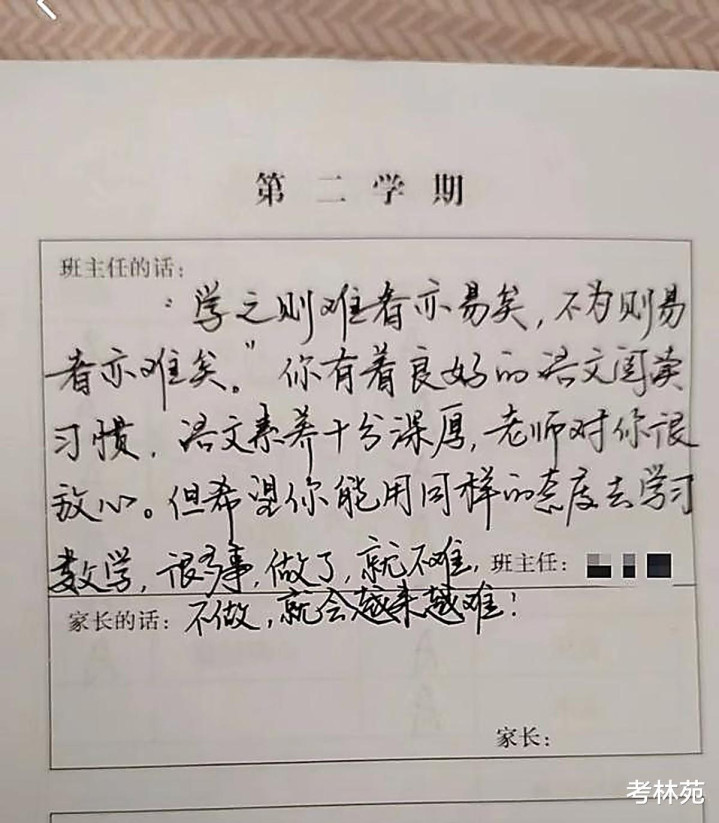 第二学期
班主任的话：
“学之则难者亦易矣，不为则易
者亦难矣。”你有着良好的语文阅读
习惯，语文素养十分深厚，老师对你很
放心。但希望你能用同样的态度去学习
数学，很多事，做了，就不难，班主任：
家长的话：不做，就会越来越难！
家长：
考林苑